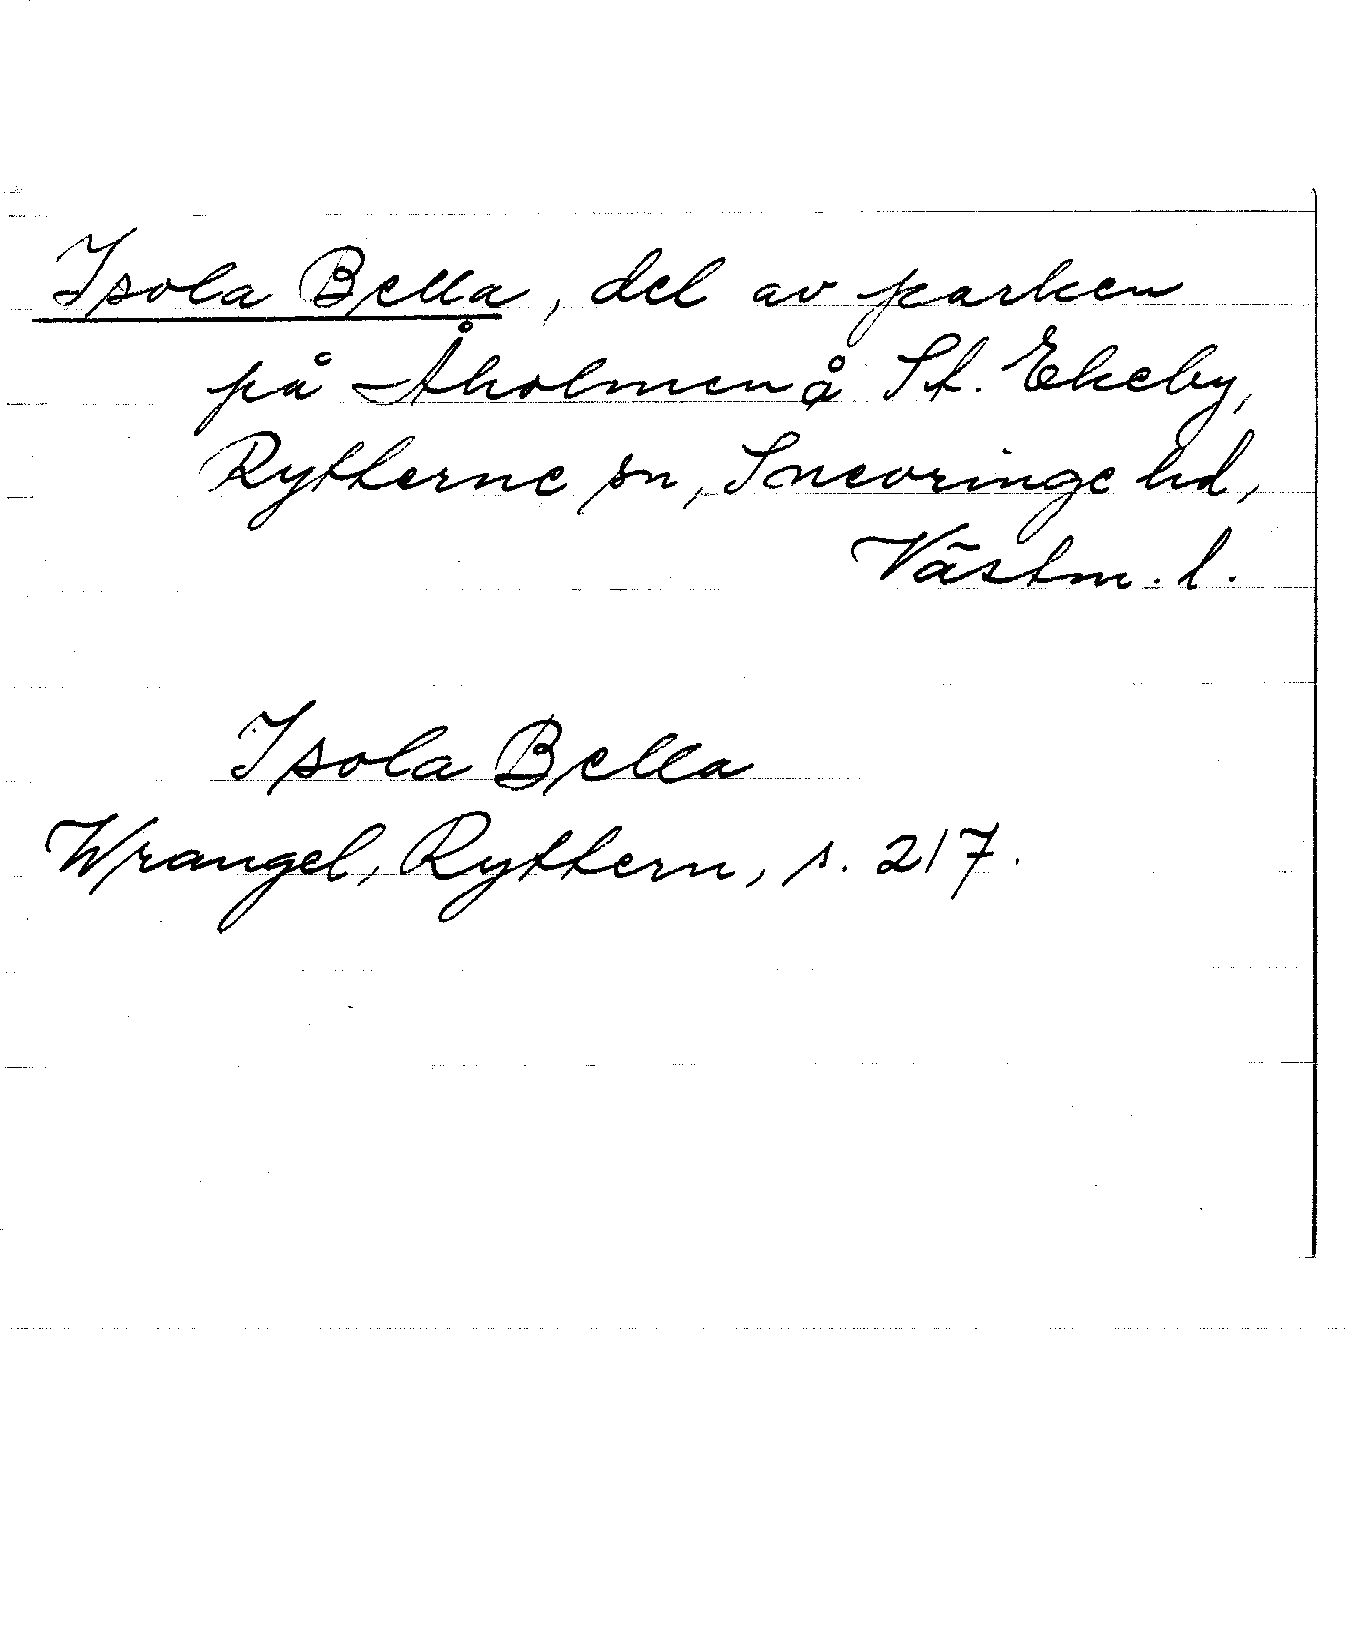 Isola Bella, del av parken
på Åholmen å St. Ekeby,
Rytterne sn, Snevringe hd,
Västm. l.
Isola Bella
Wrangel, Ryttern, s. 217.